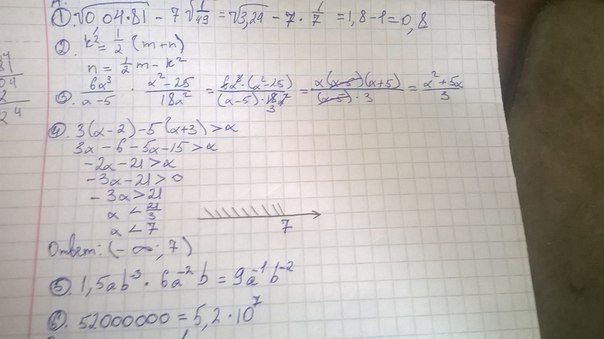 А.
① √0,04·81 - 7√1/49 = √3,24 - 7·1/7 = 1,8-1=0,8
② k² = 1/2 (m+n)
n = 1/2 m - k²
③ 6x³/x-5 · x²-25/18x² = 6x³·(x²-25)/(x-5)·18x² 3 = x(x-5)(x+5)/(x-5)·3 = x²+5x/3
④ 3(x-2)-5(x+3)>x
3x-6-5x-15>x
-2x-21>x
-3x-21>0
-3x>21
x < 21/3
x < 7
7
Ответ: (-∞; 7)
⑤ 1,5ab⁻³ · 6a⁻²b = 9a⁻¹b⁻²
⑥ 52000000 = 5,2·10⁷